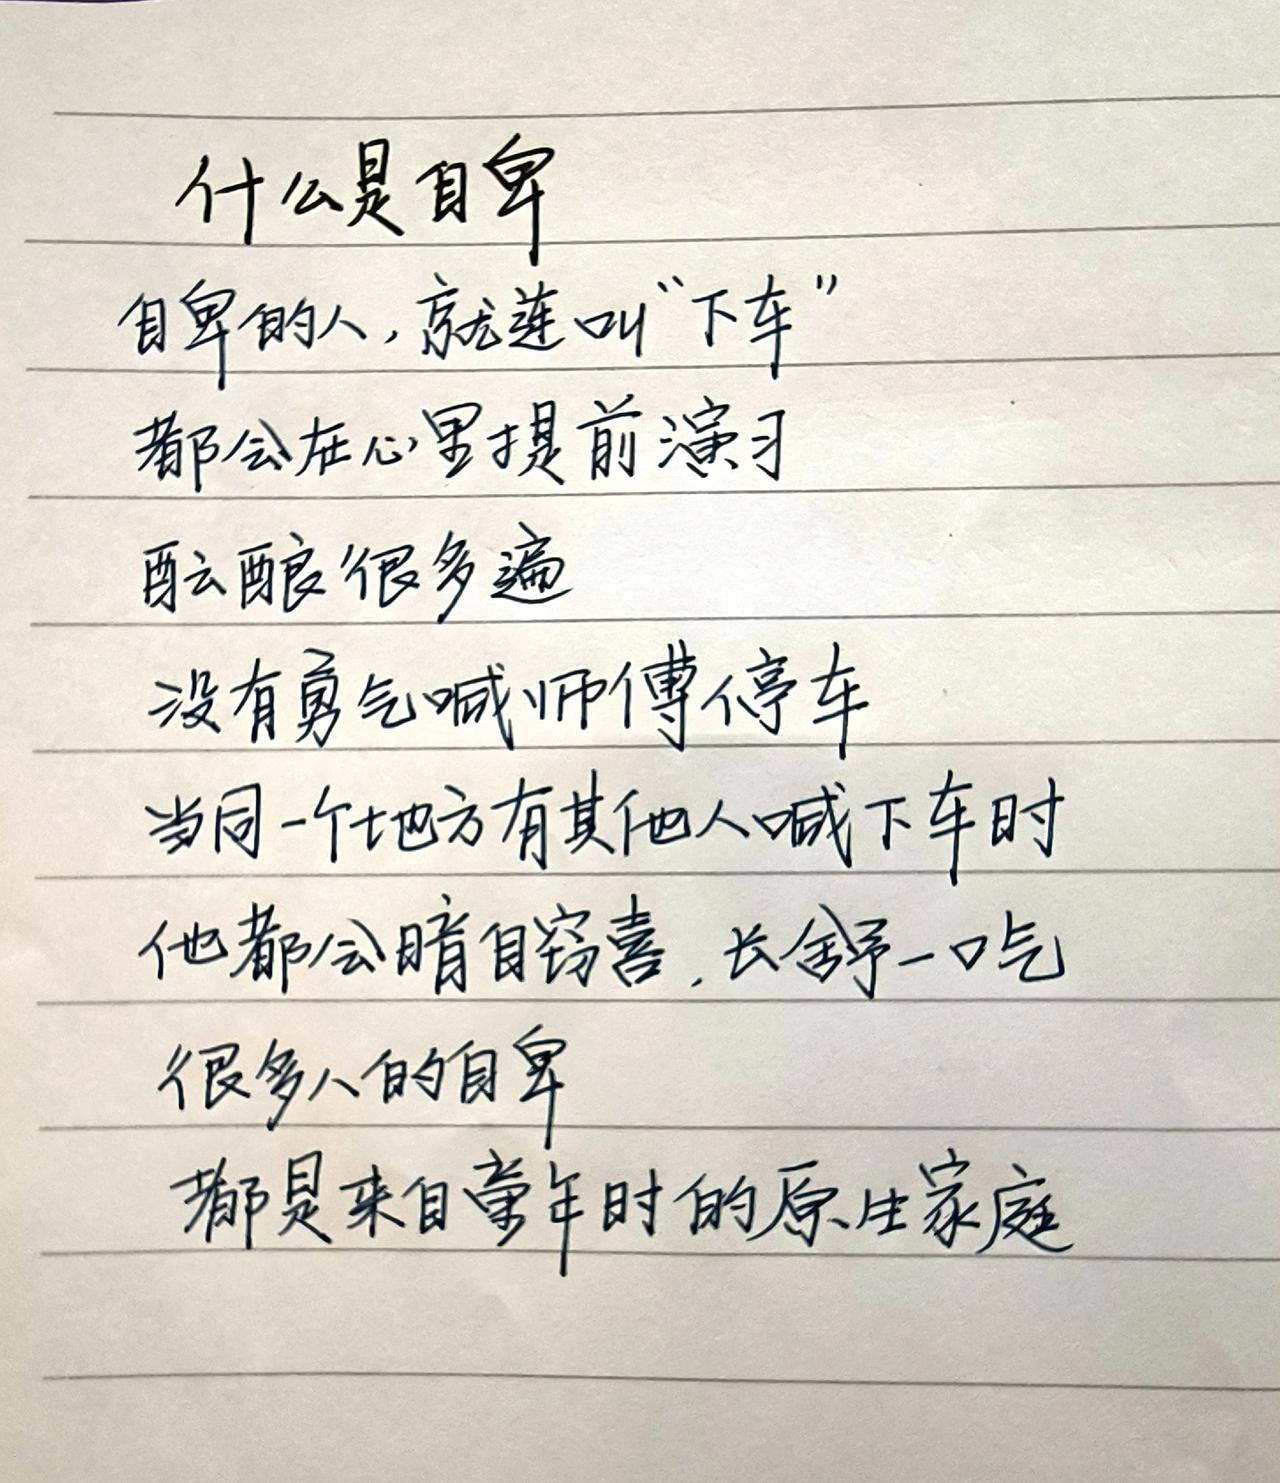 什么是自卑
自卑的人，就连叫“下车”
都会在心里提前演习
酝酿很多遍
没有勇气喊师傅停车
当同一个地方有其他人喊下车时
他都会暗自窃喜，长舒一口气
很多人的自卑
都是来自童年时的原生家庭